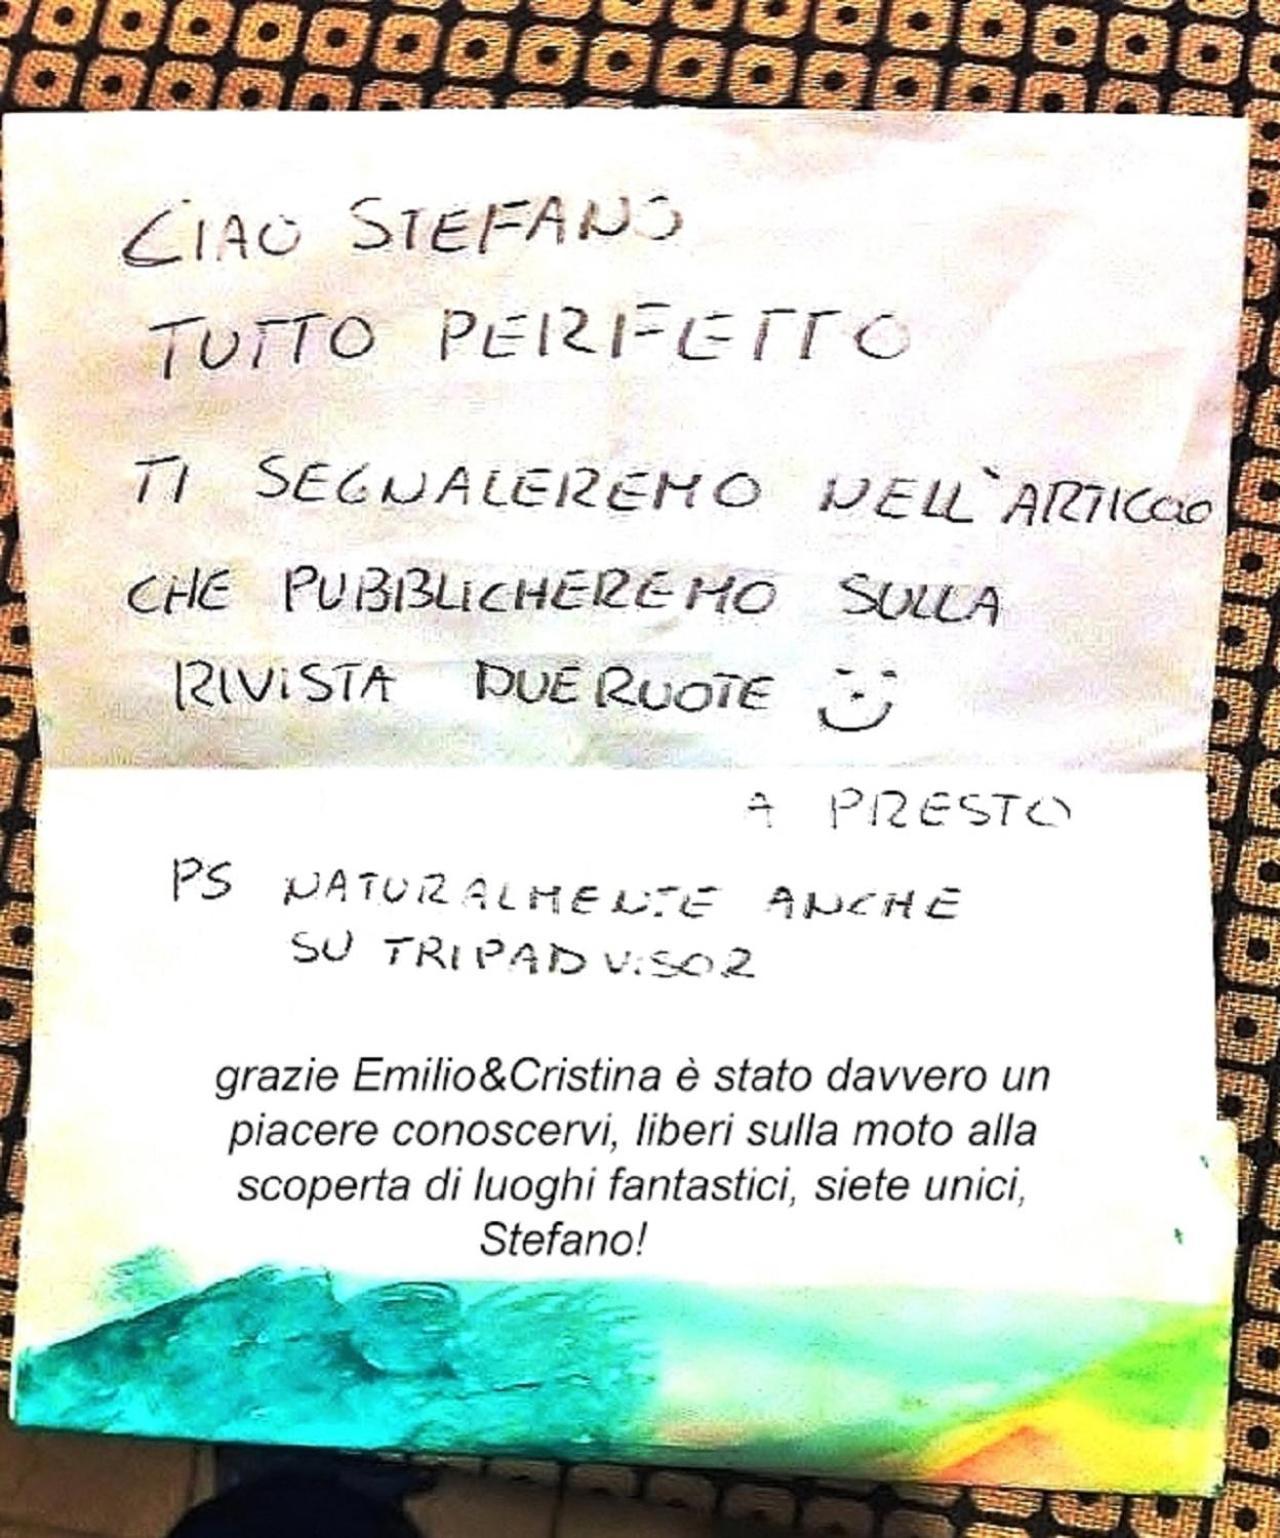 CIAO STEFANO
TUTTO PERFETTO
TI SEGNALEREMO NELL'ARTICOLO
CHE PUBBLICHEREMO SULLA
RIVISTA DUERUOTE
A PRESTO
PS NATURALMENTE ANCHE
SU TRIPADVISOR
grazie Emilio&Cristina è stato davvero un
piacere conoscervi, liberi sulla moto alla
scoperta di luoghi fantastici, siete unici,
Stefano!